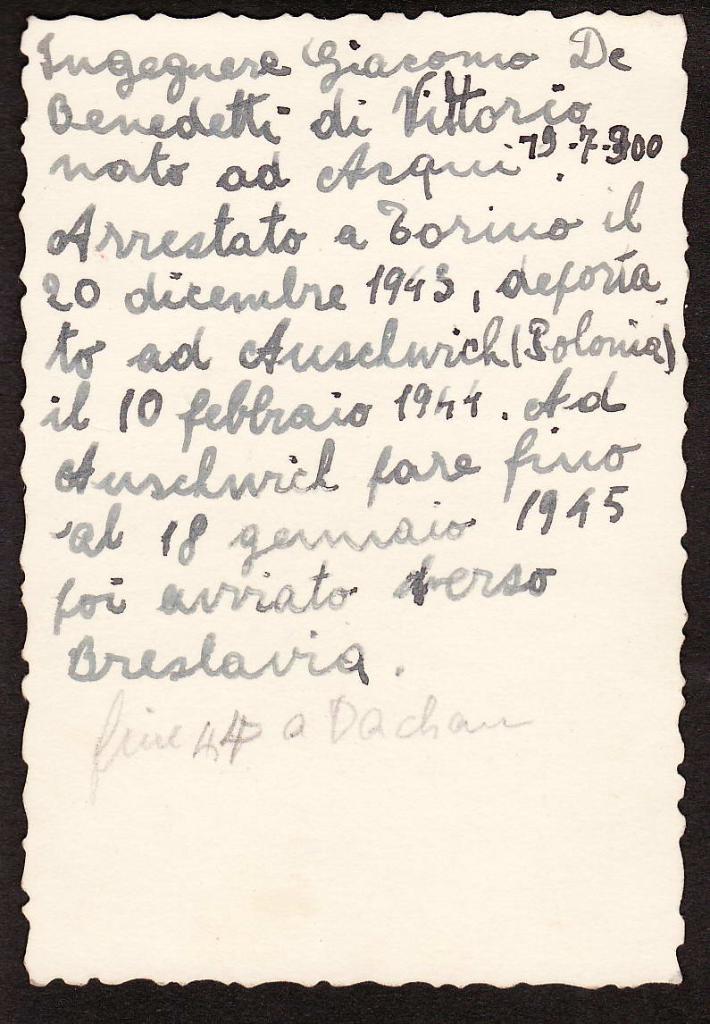 Ingegnere Giacomo De
Benedetti di Vittorio
nato ad Acqui 19-7-900.
Arrestato a Torino il
20 dicembre 1943, deporta
to ad Auschwich (Polonia)
il 10 febbraio 1944. Ad
Auschwich pare fino
al 18 gennaio 1945
poi avviato verso
Breslavia.
fine 44 a Dachau